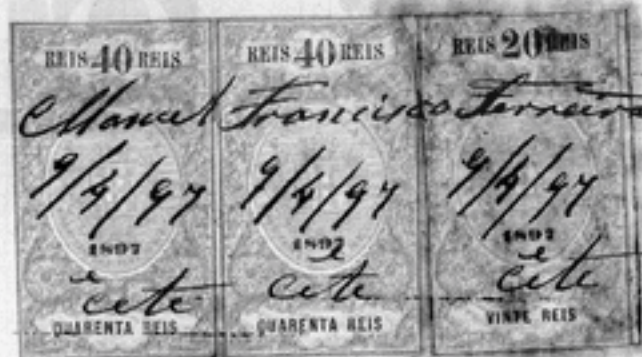 REIS 40 REIS REIS 40 REIS REIS 20 REIS
Manuel Francisco Ferreira
9/4/97 9/4/97 9/4/97
1897 1897 1897
è cete è cete è cete
QUARENTA REIS QUARENTA REIS VINTE REIS